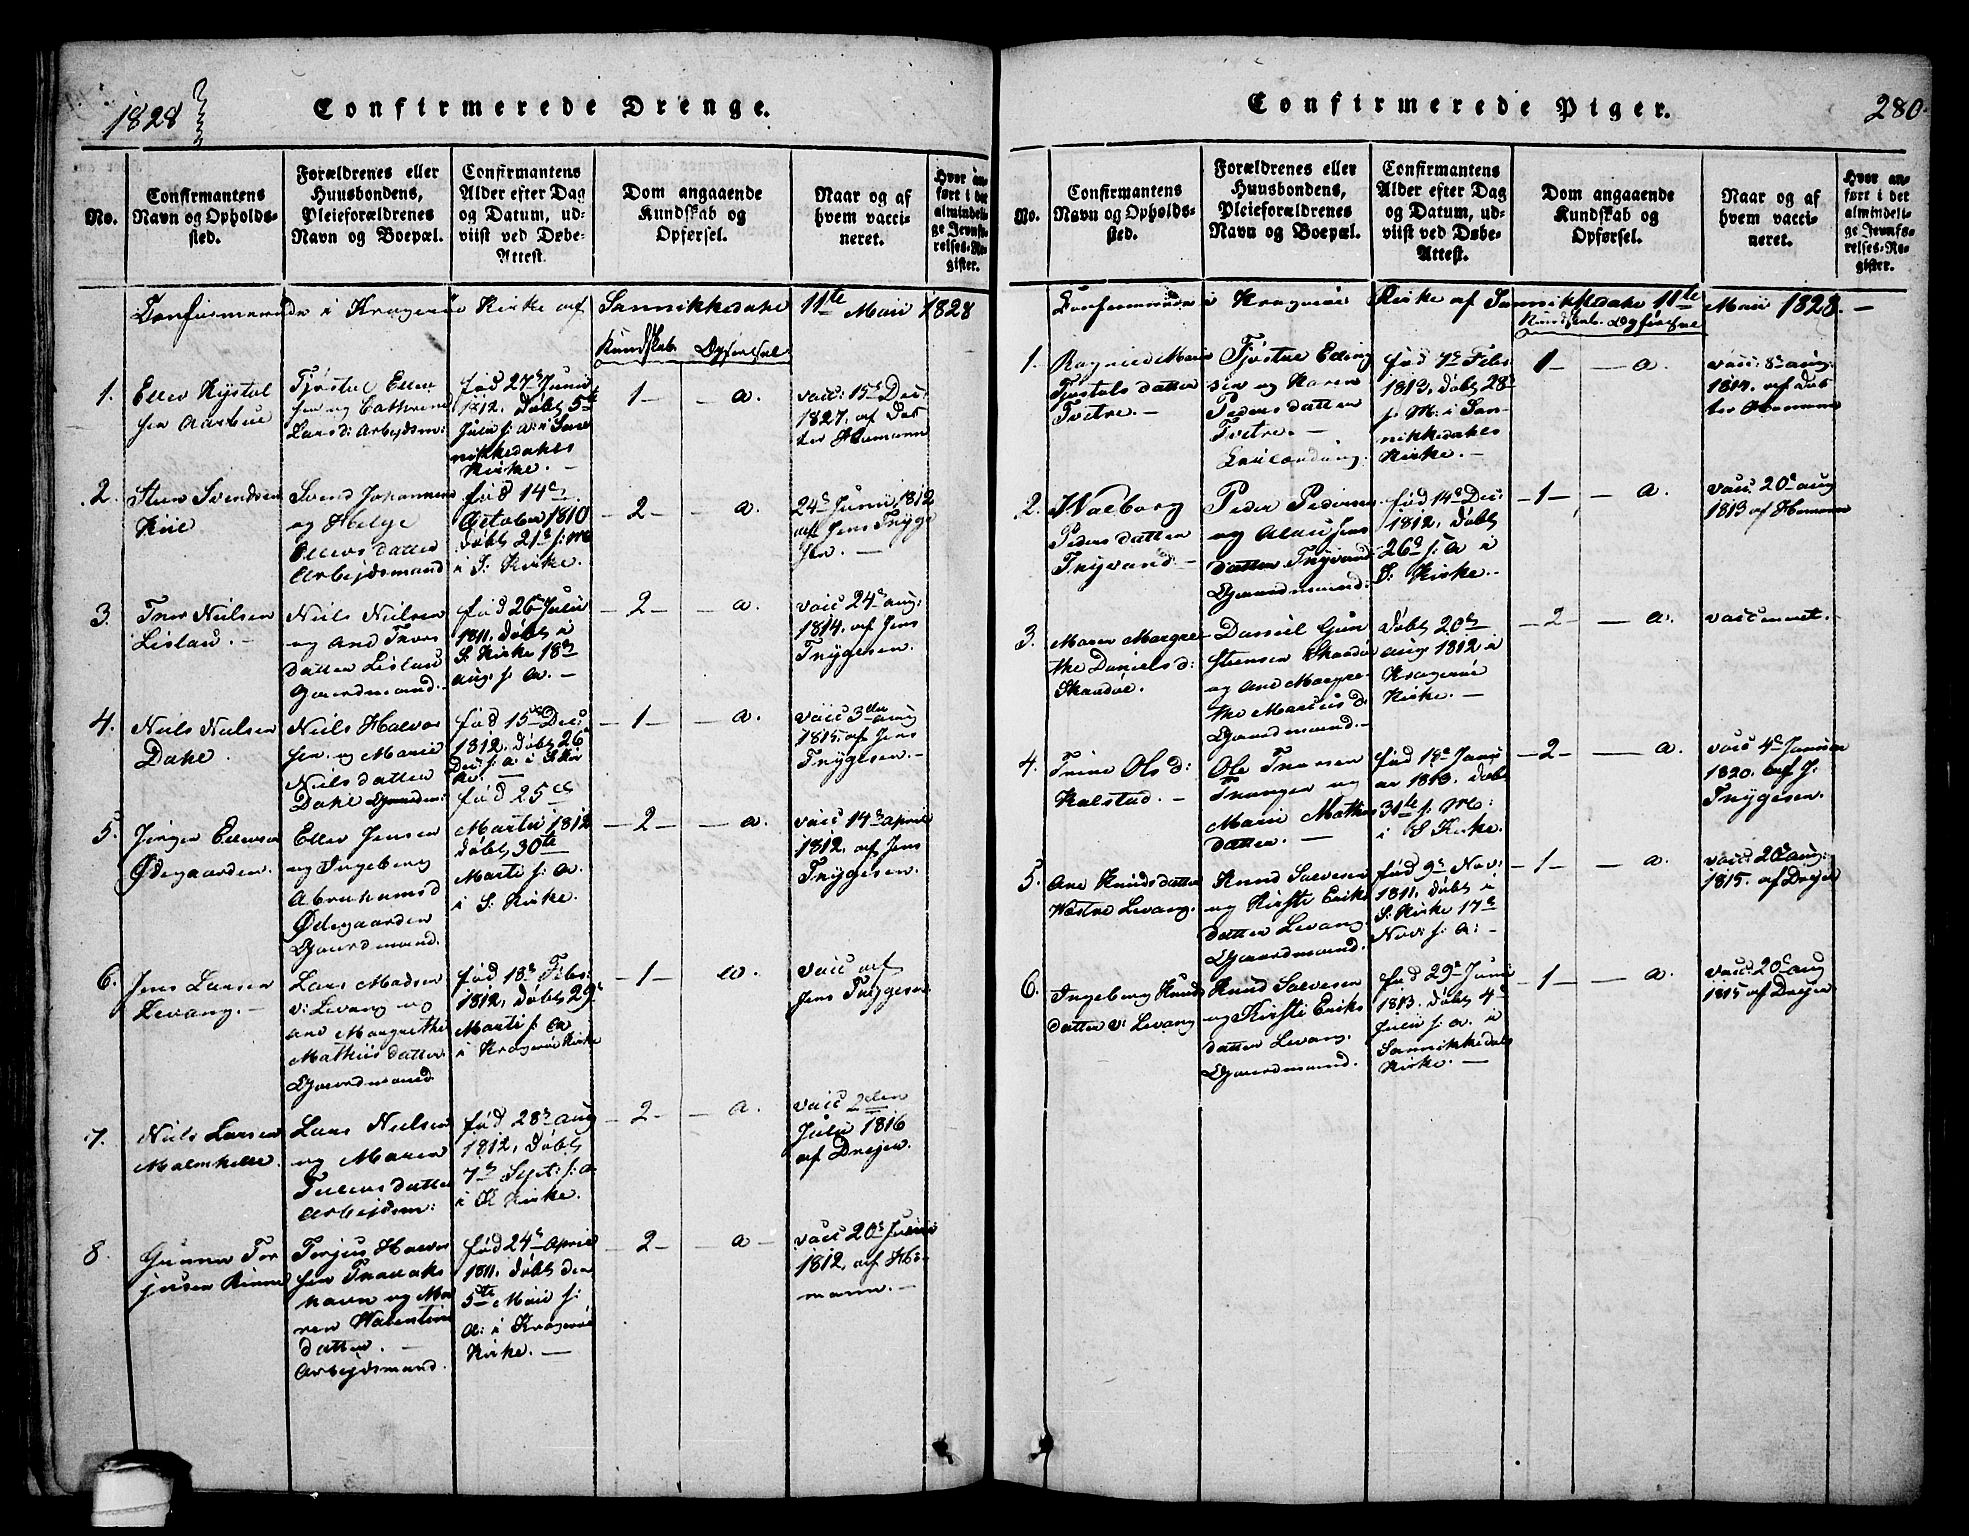 1828
Confirmerede Drenge.
No.
Confirmantens
Navn og Opholds-
sted.
Forældrenes eller
Huusbondens,
Pleieforældrenes
Navn og Boepæl.
Confirmantens
Alder efter Dag
og Datum, ud-
viist ved Døbe-
Attest.
Dom angaaende
Kundskab og
Opførsel.
Naar og af
hvem vacci-
neret.
Hvor an-
ført i det
almindeli-
ge Jevnfø-
relses-Re-
gister.
Confirmerede i Kragerøe Kirke af Sannikkedahl 11te Maii 1828
Kundskab. Opførsel
1.
Ellev Kjøstol
sen Aarbue
Tjøstel Ellev
sen og Cathrine
Larsd: Arbejdsm:
fød 27de Junii
1812. døbt 5te
Julii s: a: i San
nikkedahls
Kirke. —
1 — — a.
vacc: 15de Dec:
1827. af Doc
ter Homann
2.
Sten Svendsen
Kiie
Svend Johannesen
og Helge
Ellevsdatter
Arbejdsmand
fød 14de
October 1810
døbt 21de s: M
i S: Kirke.
— 2 — — a.
24de Junii 1812
af Jens Tryge
sen. —
3.
Thor Nielsen
Lislau. —
Niels Nielsen
og Ane Thors
datter Lislau
Gaardmand.
fød 26de Julii
1811. døbt i
S: Kirke 18de
aug: s: a. —
2 — — a.
vacc 24de aug:
1814. af Jens
Trygesen.
4.
Niels Nielsen
Dahle.
Niels Halvor
sen og Marie
Nielsdatter
Dahle Gaardm:
fød 15de Dec:
1812. døbt 26de
Dec: s: a: i S Kir
ke. —
— 1 — — a.
vacc 3den aug
1815. af Jens
Trygesen —
5.
Jørgen Ellevsen
Ødegaarden.
Ellev Jensen
og Ingeborg
Abrahamsd
Ødegaarden
Gaardmand.
fød 25de
Martii 1812
døbt 30te
Martii s: a.
i S: Kirke.
— 2 — — a.
vacc 14de april
1812. af Jens
Trygesen.
6.
Jens Larsen
Levang. —
Lars Madsen
v: Levang og
Ane Margrethe
Mathiisdatter
Gaardmand
fød 18de Febr:
1812. døbt 29de
Martii s: a
i Kragerøe Kirke
— 1 — — a.
vacc af
Jens Trygesen
7.
Niels Larsen
Malmhelle.
Lars Nielsen
og Maren
Tellevsdatter
Arbejdsm:
fød 28de aug
1812. døbt
7de Sept: s: a
i K Kirke.
— 2 — — a.
vacc 2den
Julii 1816
af Drejer
8.
Gunner Tor
jusen
Torjus Halvor
sen
havn og Ma
ren Valentins
datter. —
Arbejdsmand.
fød 24de April
1811. døbt den
5te Maii s:
a: i Kragerøe
Kirke. —
— 2 — — a —
vacc 20de Junii
1812. af Ho-
mann. —
280.
Confirmerede Piger.
No.
Confirmantens
Navn og Opholds-
sted.
Forældrenes eller
Huusbondens,
Pleieforældrenes
Navn og Boepæl.
Confirmantens
Alder efter Dag
og Datum, ud-
viist ved Døbe-
Attest.
Dom angaaende
Kundskab og
Opførsel.
Naar og af
hvem vacci-
neret.
Hvor an-
ført i det
almindeli-
ge Jevnfø-
relses-Re-
gister.
Confirmerede i Kragerøe Kirke af Sannikkedahl 11te Maii 1828. —
Kundskab. Opførsel
1.
Ragnild Marie
Tjostolsdatter
Tvetre. —
Tjostol Elling
sen og Karen
Pedersdatter
Tvetre. —
fød 7de Febr
1813. døbt 28de
s: M: i San-
nikkedahls
Kirke. —
1 — — a.
vacc: 8de aug:
1814. af Doc
ter Homann
2.
Walborg
Pedersdatter
Trysvand —
Peder Pedersen
og
datter Trysvand
Gaardmand:
fød 14de Dec:
1812. døbt
26de s: a i
S: Kirke. —
— 1 — — a.
vacc: 20de aug
1813 af Homann
3.
Maren Margre-
the Daniels d:
Skaadøe.
Daniel Gun
stensen Skaadøe
og Ane Margre-
the Marcus d:
Gaardmand. —
døbt 20de
aug 1812 i
Kragerøe
Kirke. —
— 2 — — a.
vaccineret. —
4.
Trine Ols d:
Kalstad. —
Ole Thorsen
Tranger og
Marie Mathis
datter. —
fød 18de Janu
ar 1813. døbt
31te s: M:
i S Kirke.
— 2 — — a.
vacc 4de Januar
1820. af J:
Trygesen.
5.
Ane Knudsdatter
Westre Levang.
Knud Solvesen
og Kirsti Eriks
datter Levang
Gaardmand.
fød 9de Nov:
1811. døbt i
S: Kirke 17de
Nov: s: a: —
— 1 — — a.
vacc: 20de aug:
1815. af Drejer
6.
Ingeborg Knuds
datter v: Levang
Knud Solvesen
og Kirsti Eriks
datter Levang.
Gaardmand.
fød 29de Junii
1813. døbt 4de
Julii s: a. i
Sannikkedals
Kirke. —
— 1 — — a.
vacc: 20de aug
1815 af Drejer